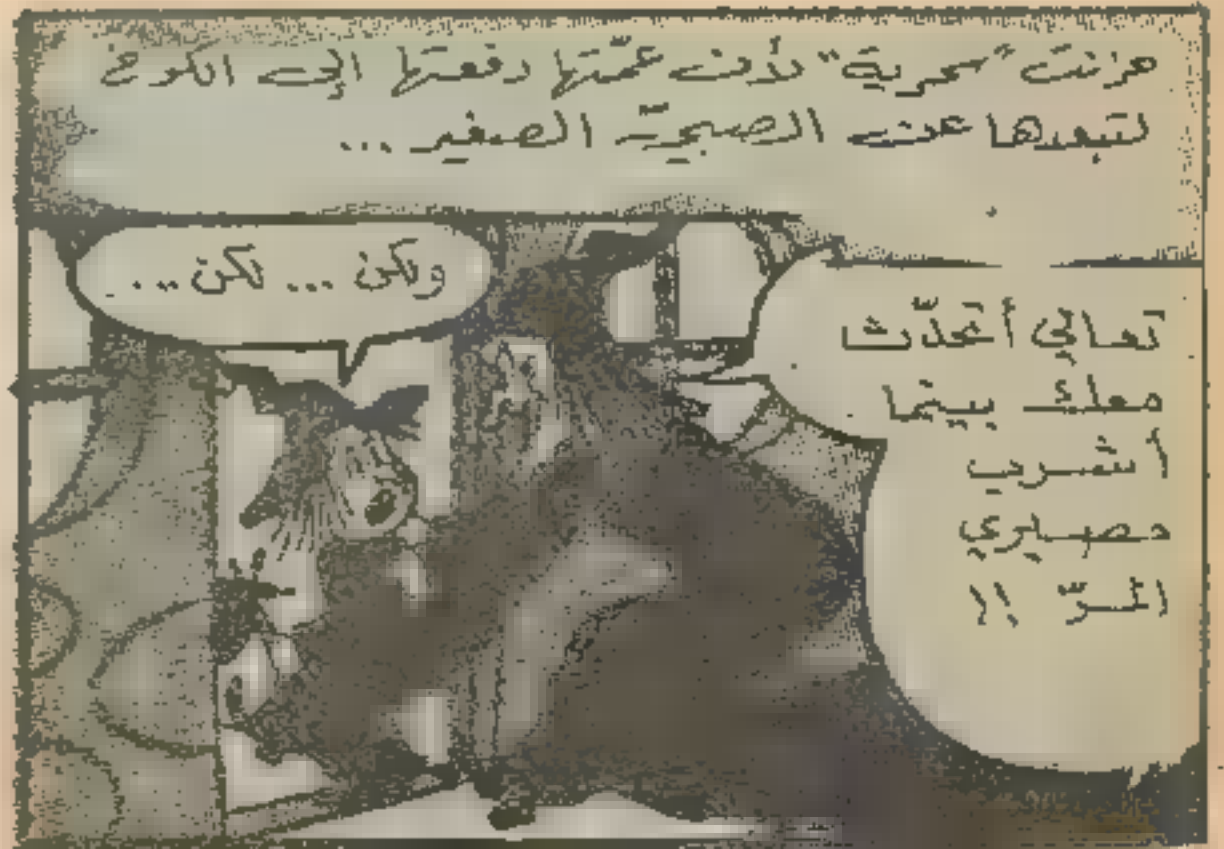 حزنت "سحرية" لأن عمّتها دفعتها إلى الكوخ
لتبعدها عن الصبيّ الصغير ...
تعالي أتحدّث
معك بينما
أشرب
عصيري
المرّ !!
ولكن ... لكن ...